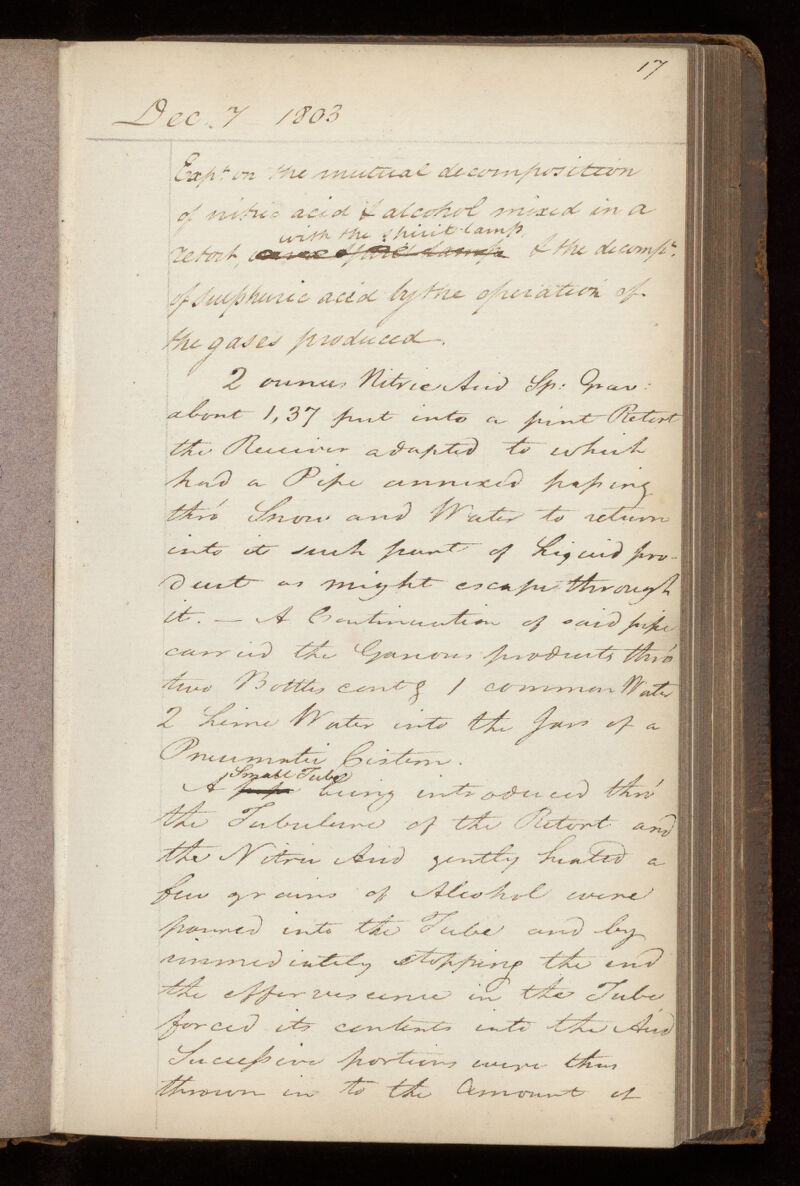 17
Dec. 7 1803
Expt on the mutual decomposition
of nitric acid & alcohol mixed in a
with the spirit-lamp
retort, & the decompn.
of sulphuric acid by the operation of
the gases produced.
2 ounces Nitric Acid Sp: Grav:
about 1,37 put into a pint Retort
the Receiver adapted to which
had a Pipe annexed passing
thro' Snow and Water to return
into it such part of Liquid pro-
duct as might escape through
it. — A Continuation of said pipe
carried the Gaseous products thro'
two Bottles contg 1 common Water
2 Lime Water into the Jars of a
Pneumatic Cistern.
Small Tube
A being introduced thro'
the Tubulure of the Retort and
the Nitric Acid gently heated a
few grains of Alcohol were
poured into the Tube and by
immediately stopping the end
the effervescence in the Tube
forced its contents into the Acid
Successive portions were thus
thrown in to the Amount of